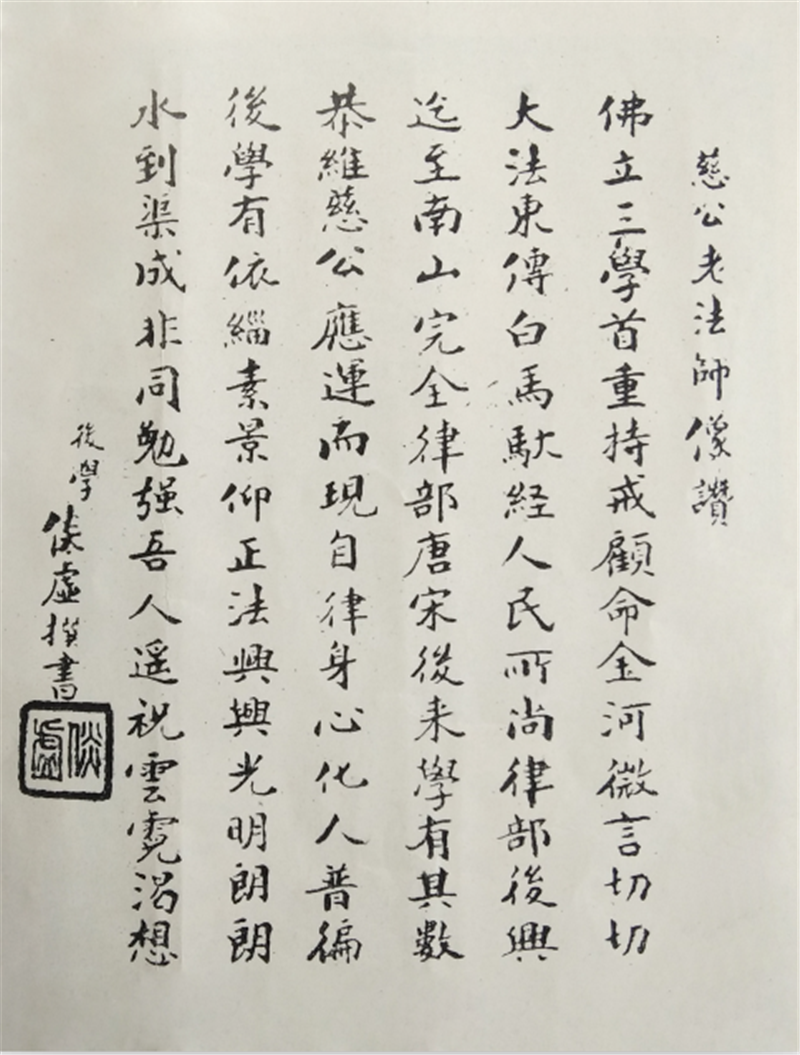 慈公老法師像讚
佛立三學首重持戒顧命金河微言切切
大法東傳白馬馱経人民所尚律部後興
迄至南山完全律部唐宋後来學有其數
恭維慈公應運而現自律身心化人普徧
後學有依緇素景仰正法興興光明朗朗
水到渠成非同勉强吾人遥祝雲霓渴想
後學倓虛撰書
倓虛